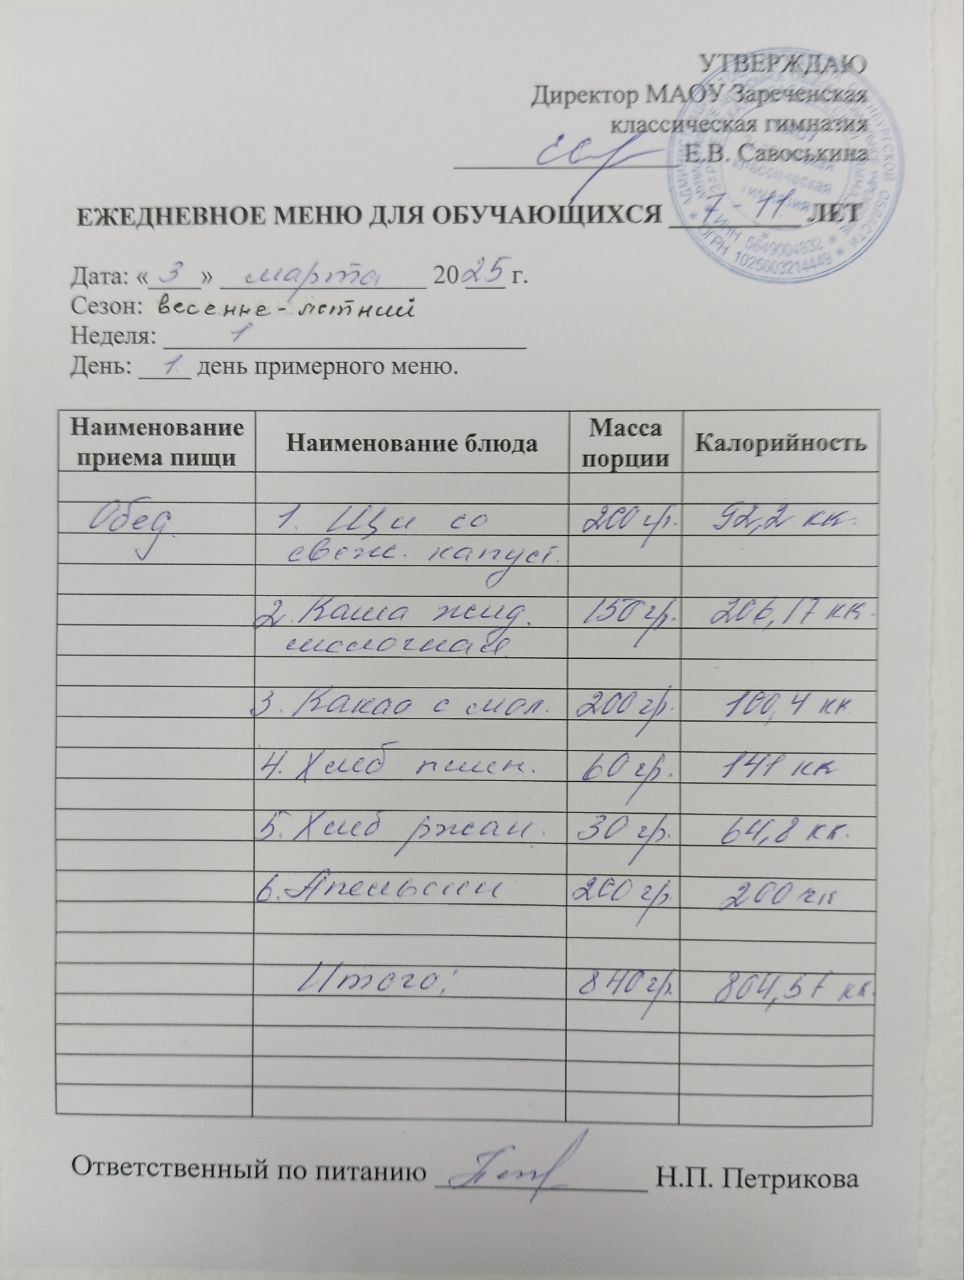 УТВЕРЖДАЮ
Директор МАОУ Зареченская
классическая гимназия
Е.В. Савоськина
ЕЖЕДНЕВНОЕ МЕНЮ ДЛЯ ОБУЧАЮЩИХСЯ 7 - 11 ЛЕТ
Дата: «3» марта 2025 г.
Сезон: весенне-летний
Неделя: 1
День: 1 день примерного меню.
Наименование приема пищи Наименование блюда Масса порции Калорийность
Обед 1. Щи со 200 гр. 92,2 кк.
свеж. капуст.
2. Каша жид. 150 гр. 206,17 кк.
молочная
3. Какао с мол. 200 гр. 100,4 кк
4. Хлеб пшен. 60 гр. 141 кк
5. Хлеб ржан. 30 гр. 64,8 кк.
6. Апельсин 200 гр. 200 кк
Итого: 840 гр. 804,57 кк.
Ответственный по питанию Н.П. Петрикова
ИНН 5649004832
ОГРН 1025603214449